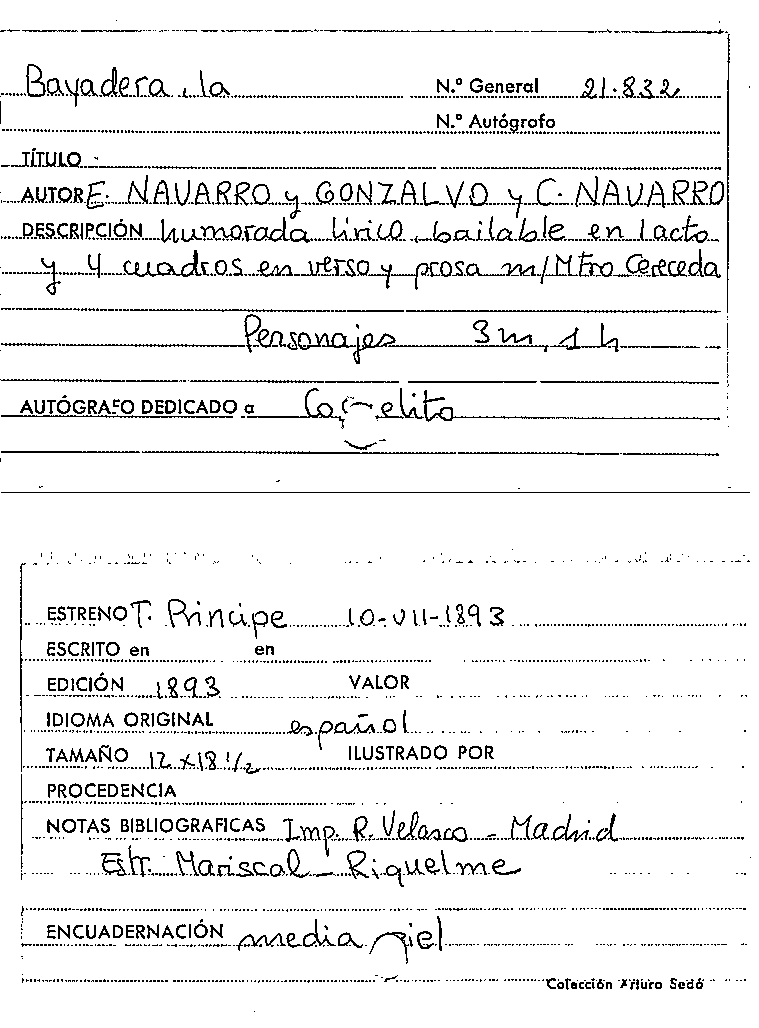 Bayadera, la N.º General 21.832
N.º Autógrafo
TÍTULO
AUTOR E. NAVARRO y GONZALVO y C. NAVARRO
DESCRIPCIÓN humorada lírico, bailable en 1 acto
y 4 cuadros en verso y prosa m/Mtro Cereceda
Personajes 3m, 1 h
AUTÓGRAFO DEDICADO a
ESTRENO T. Principe 10-VII-1893
ESCRITO en en
EDICIÓN 1893 VALOR
IDIOMA ORIGINAL español
TAMAÑO 12 x 18 1/2 ILUSTRADO POR
PROCEDENCIA
NOTAS BIBLIOGRAFICAS Imp. R. Velasco - Madrid
Estr. Mariscal - Riquelme
ENCUADERNACIÓN media piel
Colección Arturo Sedó